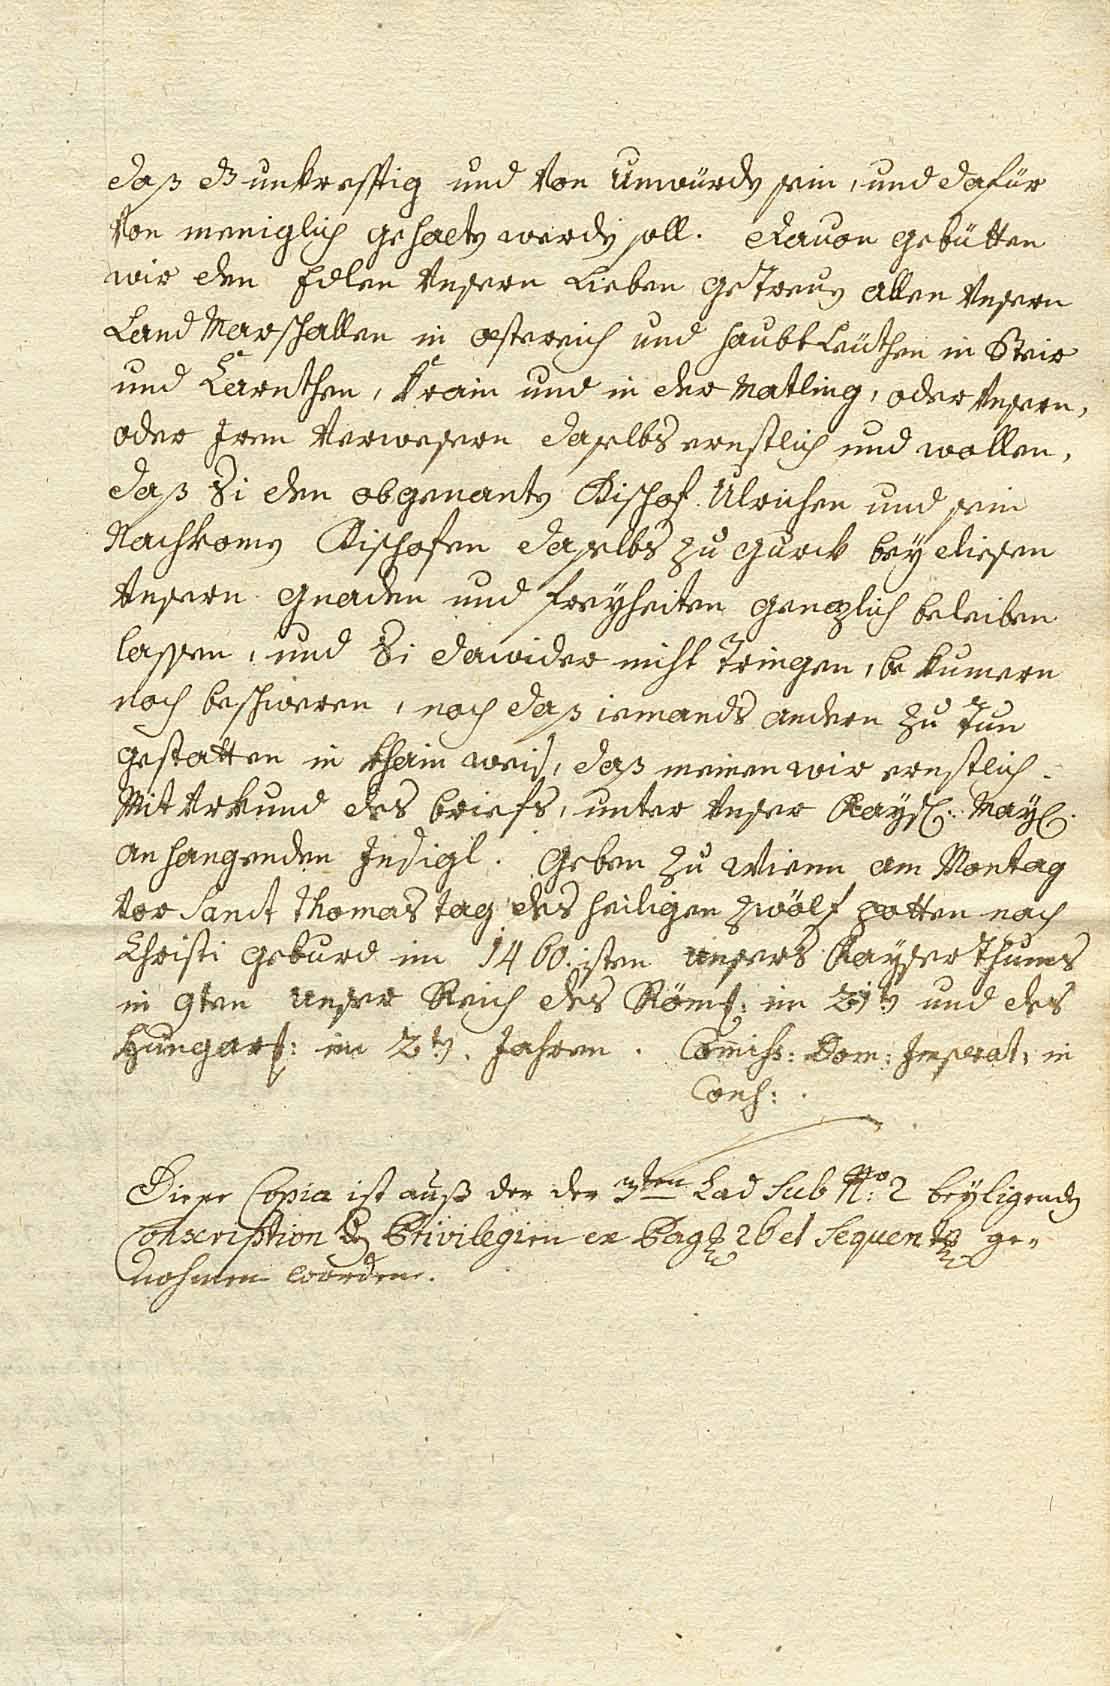 daß es unkrefftig und von Unwürdn sein, und dafür
von meniglich gehaltn werdn soll. dauon gebütten
wir den Edlen Unsern Lieben getreun allen Unsern
Land Marschallen in Österreich und haubt Leüthen in Steir
und Kärnthen, Krain und in der Matling, oder Unsern,
oder Iren Verwesern daselbs ernstlich und wollen,
daß Si den obgenantn Bischof Ulrichen und sein
Nachkomn Bischofen daselbs zu Gurck bey diesen
Unsern gnaden und freyheiten genzlich beleiben
lassen, und Si dawider nicht Tringen, be kumern
noch beschweren, noch daß iemands andern zu Tun
gestatten in khain weis, daß meinen wir ernstlich.
Mit Urkund des briefs, unter Unser Kays: May:
anhangenden Insigl. Geben zu Wienn am Montag
vor Sanct Thomas tag des heiligen zwölf potten nach
Christi geburd im 1460.isten Unsers Kayserthums
in 9ten Unser Reich des Röms: im 21tn und des
Hungars: im 2tn. Jahren. Comiss: Dom: Imperat: in
Cons:.
Diese Copia ist auß der der 3ten Lad Sub No: 2 beyligendn
Conscription der Privilegien ex Pag: 26 et Sequent: ge-
nohmen worden.